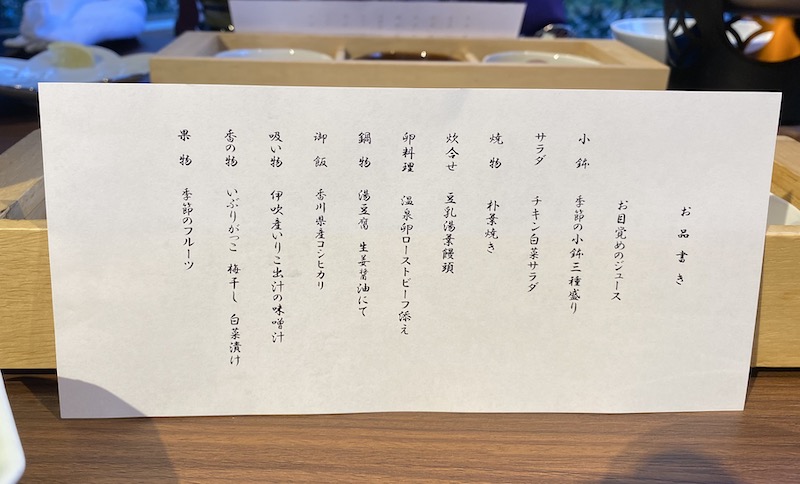 お品書き
お目覚めのジュース
小鉢 季節の小鉢三種盛り
サラダ チキン白菜サラダ
焼物 朴葉焼き
炊合せ 豆乳湯葉饅頭
卵料理 温泉卵ローストビーフ添え
鍋物 湯豆腐 生姜醤油にて
御飯 香川県産コシヒカリ
吸い物 伊吹産いりこ出汁の味噌汁
香の物 いぶりがっこ 梅干し 白菜漬け
果物 季節のフルーツ